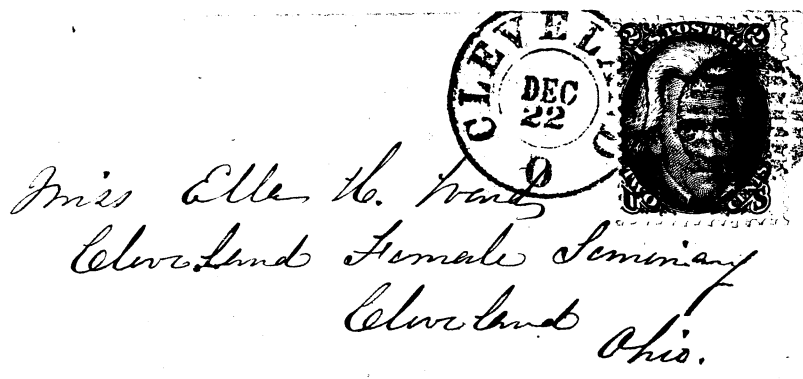 CLEVELAND
DEC
22
O
U.S. POSTAGE
Miss Ella H. Ward
Cleveland Female Seminary
Cleveland
Ohio.